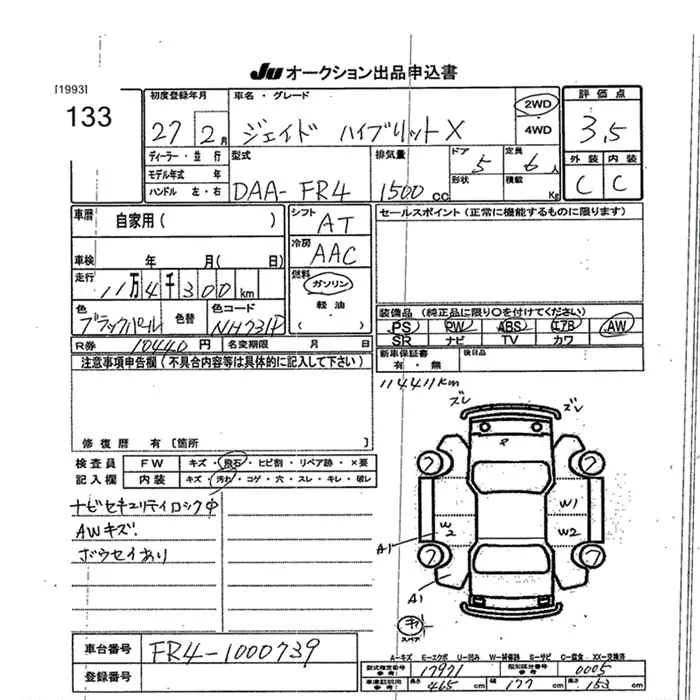 JU オークション出品申込書
[1993]
133
初度登録年月
27 2月
車名・グレード
ジェイド ハイブリットX
2WD
4WD
評価点
3.5
外装 内装
C C
ディーラー・並行
モデル年式 年
ハンドル 左・右
型式
DAA-FR4
排気量
1500cc
ドア
5
形状
定員
6人
積載
Kg
車歴
自家用( )
車検 年 月( 日)
走行
11万4千300km
色
ブラックパール
色替
色コード
NH731P
シフト
AT
冷房
AAC
燃料
ガソリン
軽油
( )
R券 10440円 名変期限 月 日
セールスポイント(正常に機能するものに限ります)
装備品 (純正品に限り○を付けてください)
PS PW ABS エアB AW
SR ナビ TV カワ
新車保証書
有・無
後日品
114411km
注意事項申告欄(不具合内容等は具体的に記入して下さい)
修復歴 有 [箇所 ]
検査員
記入欄
FW キズ・飛石・ヒビ割・リペア跡・×要
内装 キズ・汚れ・コゲ・穴・スレ・キレ・破レ
ナビセキュリティロック中
AWキズ.
ボウセイあり
ズレ ズレ
W1
W2
W2
A1
A1
キ
スペア
車台番号 FR4-1000739
登録番号
A-キズ E-エクボ U-凹み W-補修跡 S-サビ C-腐食 XX-交換済
型式指定番号
(参考)
17971
類別区分番号
(参考)
0005
車検証記載
(参考)
長さ 465cm 幅 177cm 高さ 153cm